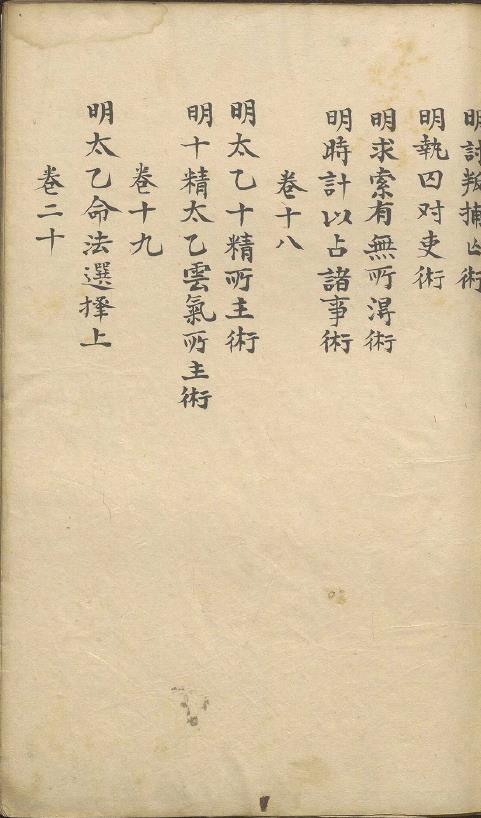 明討叛捕亡術
明執囚对吏術
明求索有無所淂術
明時計以占諸事術
卷十八
明太乙十精所主術
明十精太乙雲氣所主術
卷十九
明太乙命法選擇上
卷二十